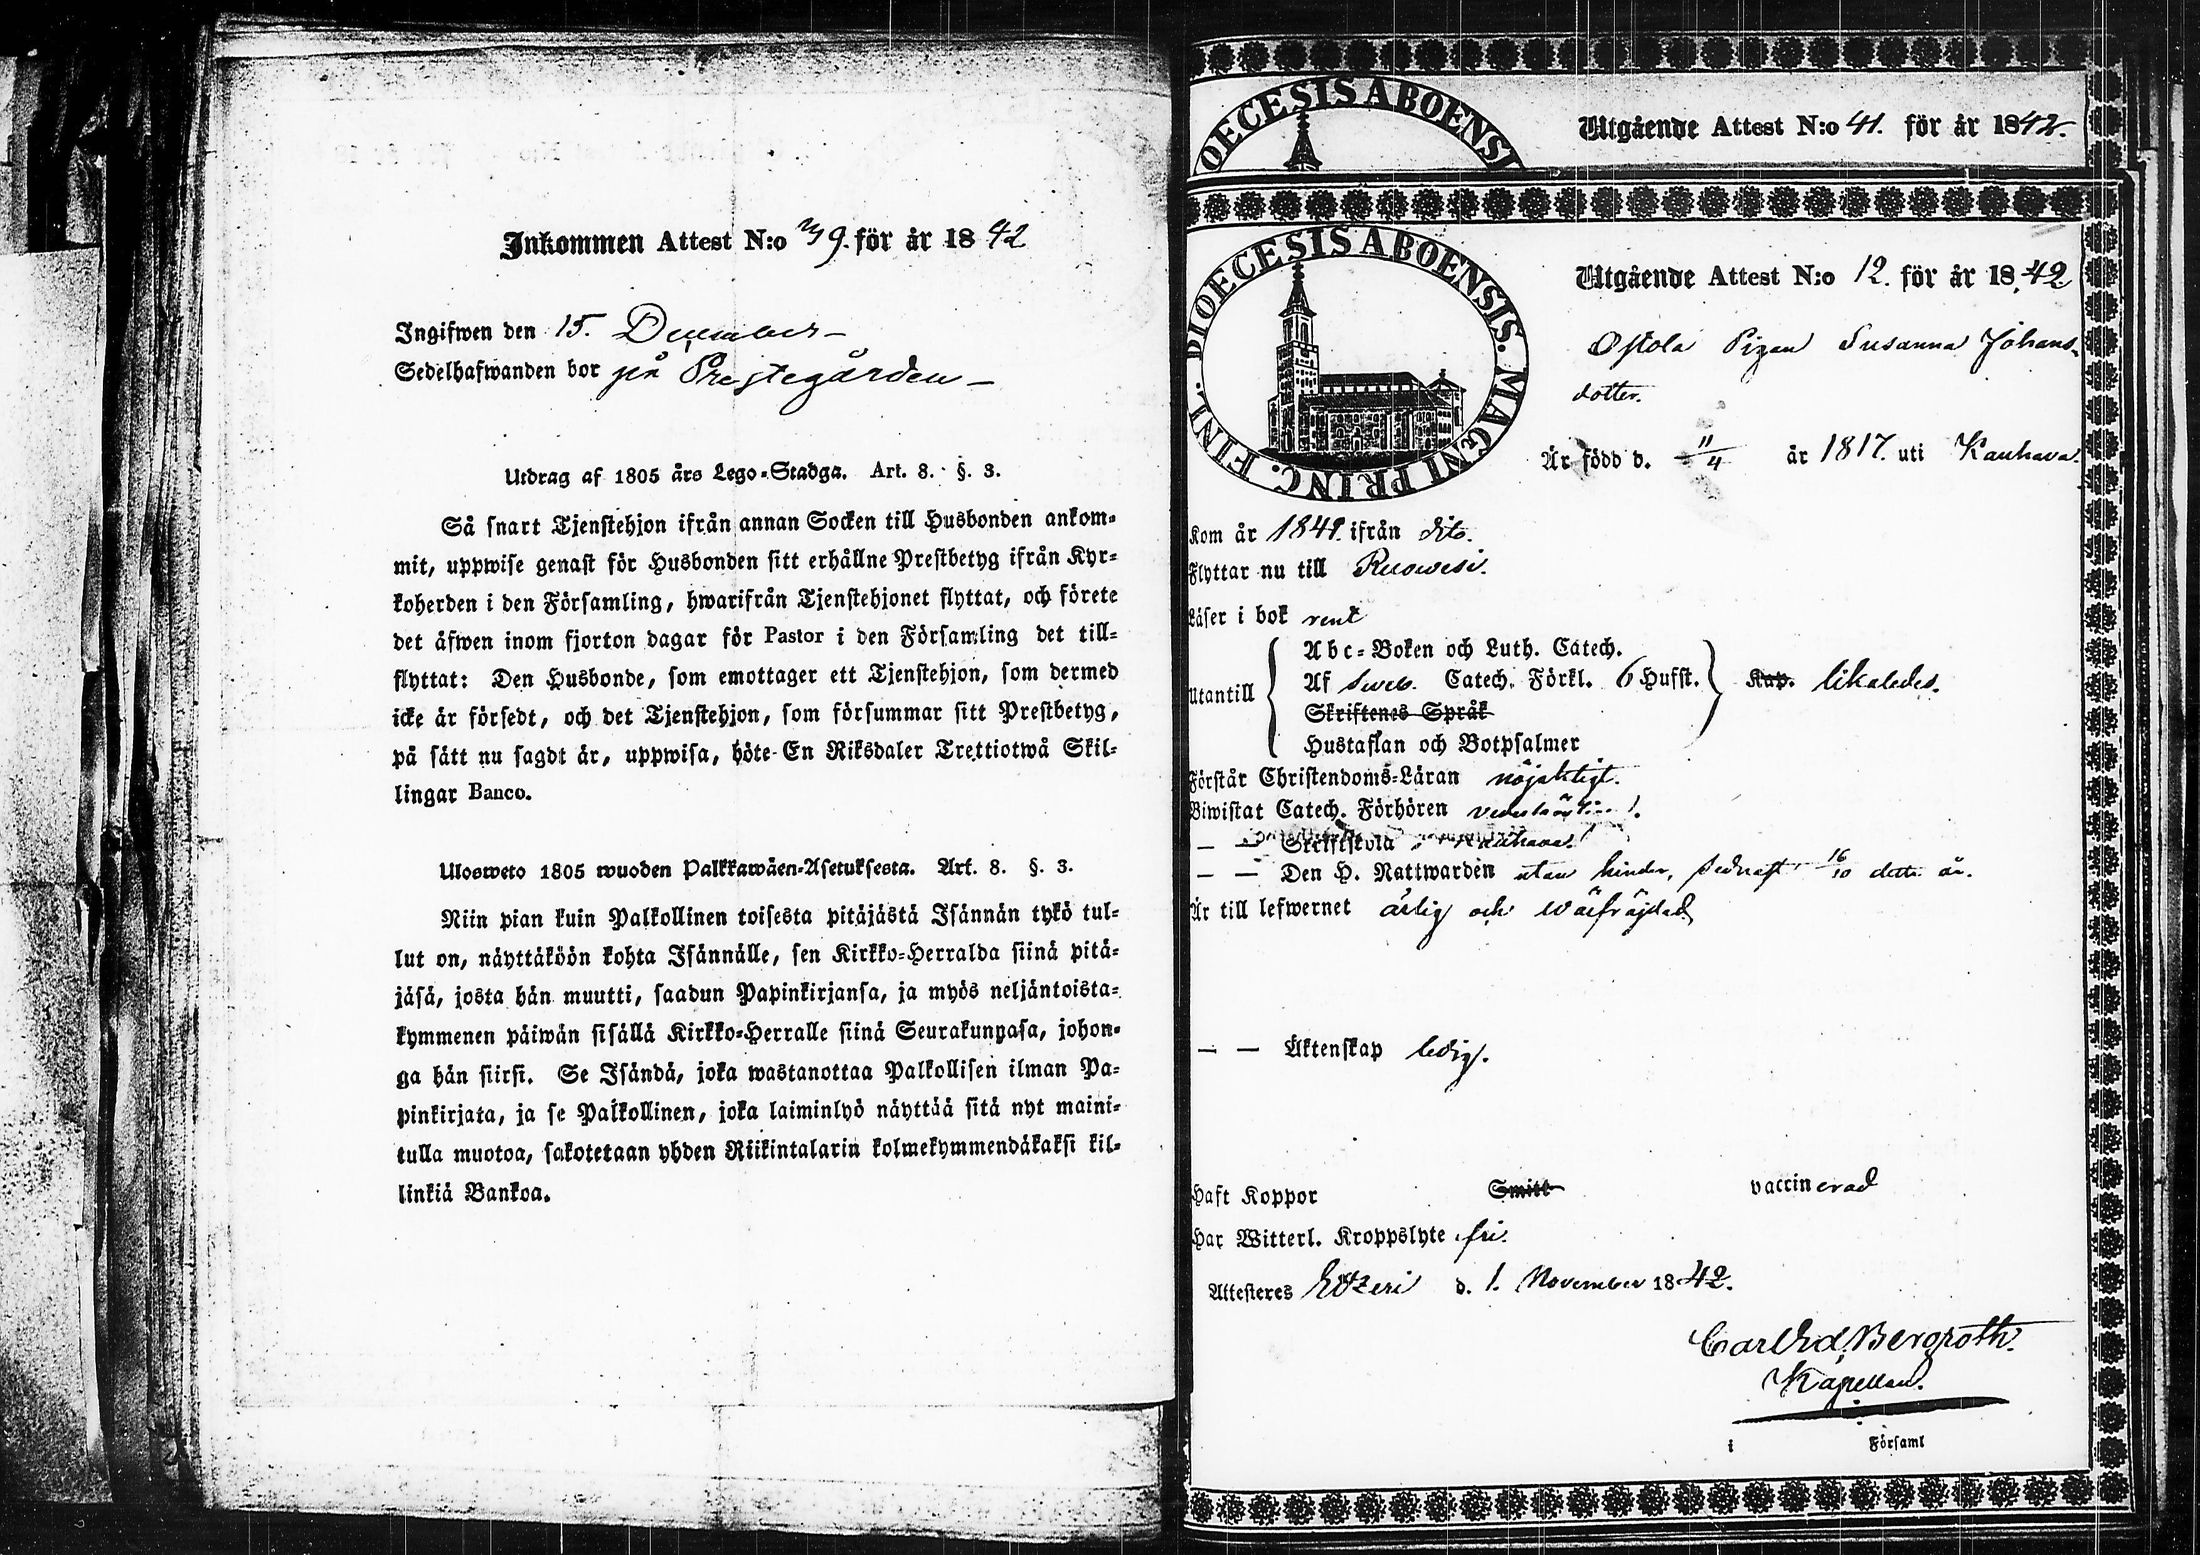 Inkommen Attest N:o 39. för år 1842
Ingifwen den 15. December
Sedelhafwanden bor på Prestegården
Utdrag af 1805 års Lego-Stadga. Art. 8. §. 3.
Så snart Tjenstehjon ifrån annan Socken till Husbonden ankom-
mit, uppwise genast för Husbonden sitt erhållne Prestbetyg ifrån Kyr-
koherden i den Församling, hwarifrån Tjenstehjonet flyttat, och förete
det äfwen inom fjorton dagar för Pastor i den Församling det till-
flyttat: Den Husbonde, som emottager ett Tjenstehjon, som dermed
icke är försedt, och det Tjenstehjon, som försummar sitt Prestbetyg,
på sätt nu sagdt är, uppwisa, böte En Riksdaler Trettiotwå Skil-
lingar Banco.
Ulosweto 1805 wuoden Palkkawäen-Asetuksesta. Art. 8. §. 3.
Niin pian kuin Palkollinen toisesta pitäjästä Isännän tykö tul-
lut on, näyttäköön kohta Isännälle, sen Kirkko-Herralda siinä pitä-
jäsä, josta hän muutti, saadun Papinkirjansa, ja myös neljäntoista-
kymmenen päiwän sisällä Kirkko-Herralle siinä Seurakunnasa, johon-
ga hän siirsi. Se Isändä, joka wastanottaa Palkollisen ilman Pa-
pinkirjata, ja se Palkollinen, joka laiminlyö näyttää sitä nyt maini-
tulla muotoa, sakotetaan yhden Riikintalarin kolmekymmendäkaksi kil-
linkiä Bankoa.
OECESIS ABOENSI
Utgående Attest N:o 41. för år 1842.
DIOECESIS ABOENSIS. MAGNI PRINC. FINL.
Utgående Attest N:o 12. för år 1842
Ostola Pigan Susanna Johans-
dotter.
Är född d. 11/4 år 1817. uti Kauhava.
Kom år 1841. ifrån dito.
Flyttar nu till Ruowesi.
Läser i bok rent
Utantill
Abc-Boken och Luth. Catech.
Af Sweb. Catech. Förkl. 6 Hufst. Kap. likaledes.
Skriftenes Språk
Hustaflan och Botpsalmer
Förstår Christendoms-Läran nöjaktigt.
Biwistat Catech. Förhören
— — Skriftskola Kauhava.
— — Den H. Nattwarden utan hinder, sednast 16/10 detta år.
Är till lefwernet ärlig och wälfräjdad
— — Äktenskap ledig.
Haft Koppor Smitt vaccinerad
Har Witterl. Kroppslyte fri.
Attesteres Etzeri d. 1. November 1842.
Carl Ed. Bergroth.
Kapellan.
i Församl